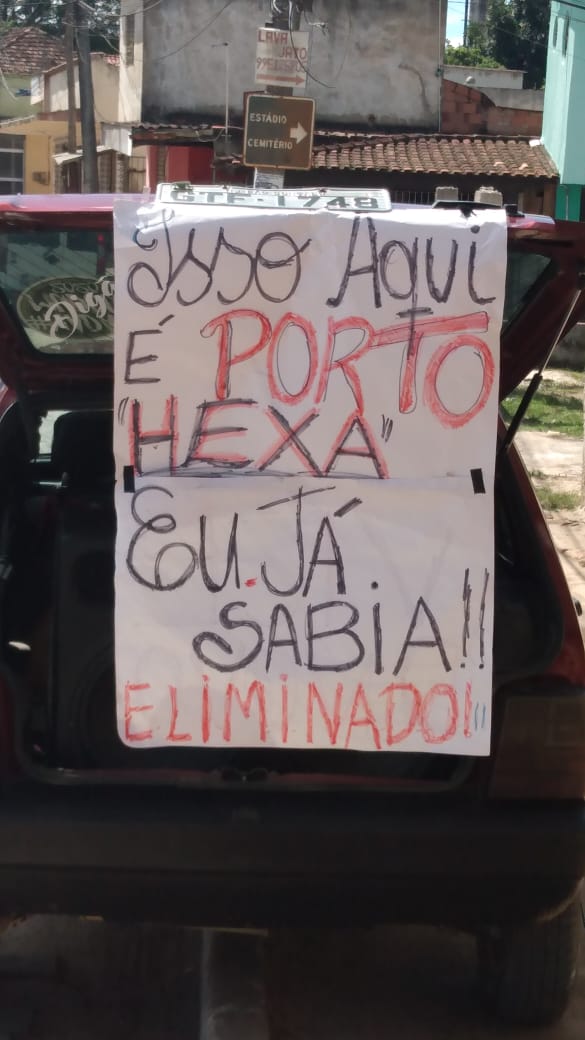 LAVA
JATO
ESTÁDIO
CEMITÉRIO
GTF-1748
Isso Aqui
É PORTO
"HEXA"
EU JÁ
SABIA!!
ELIMINADO!